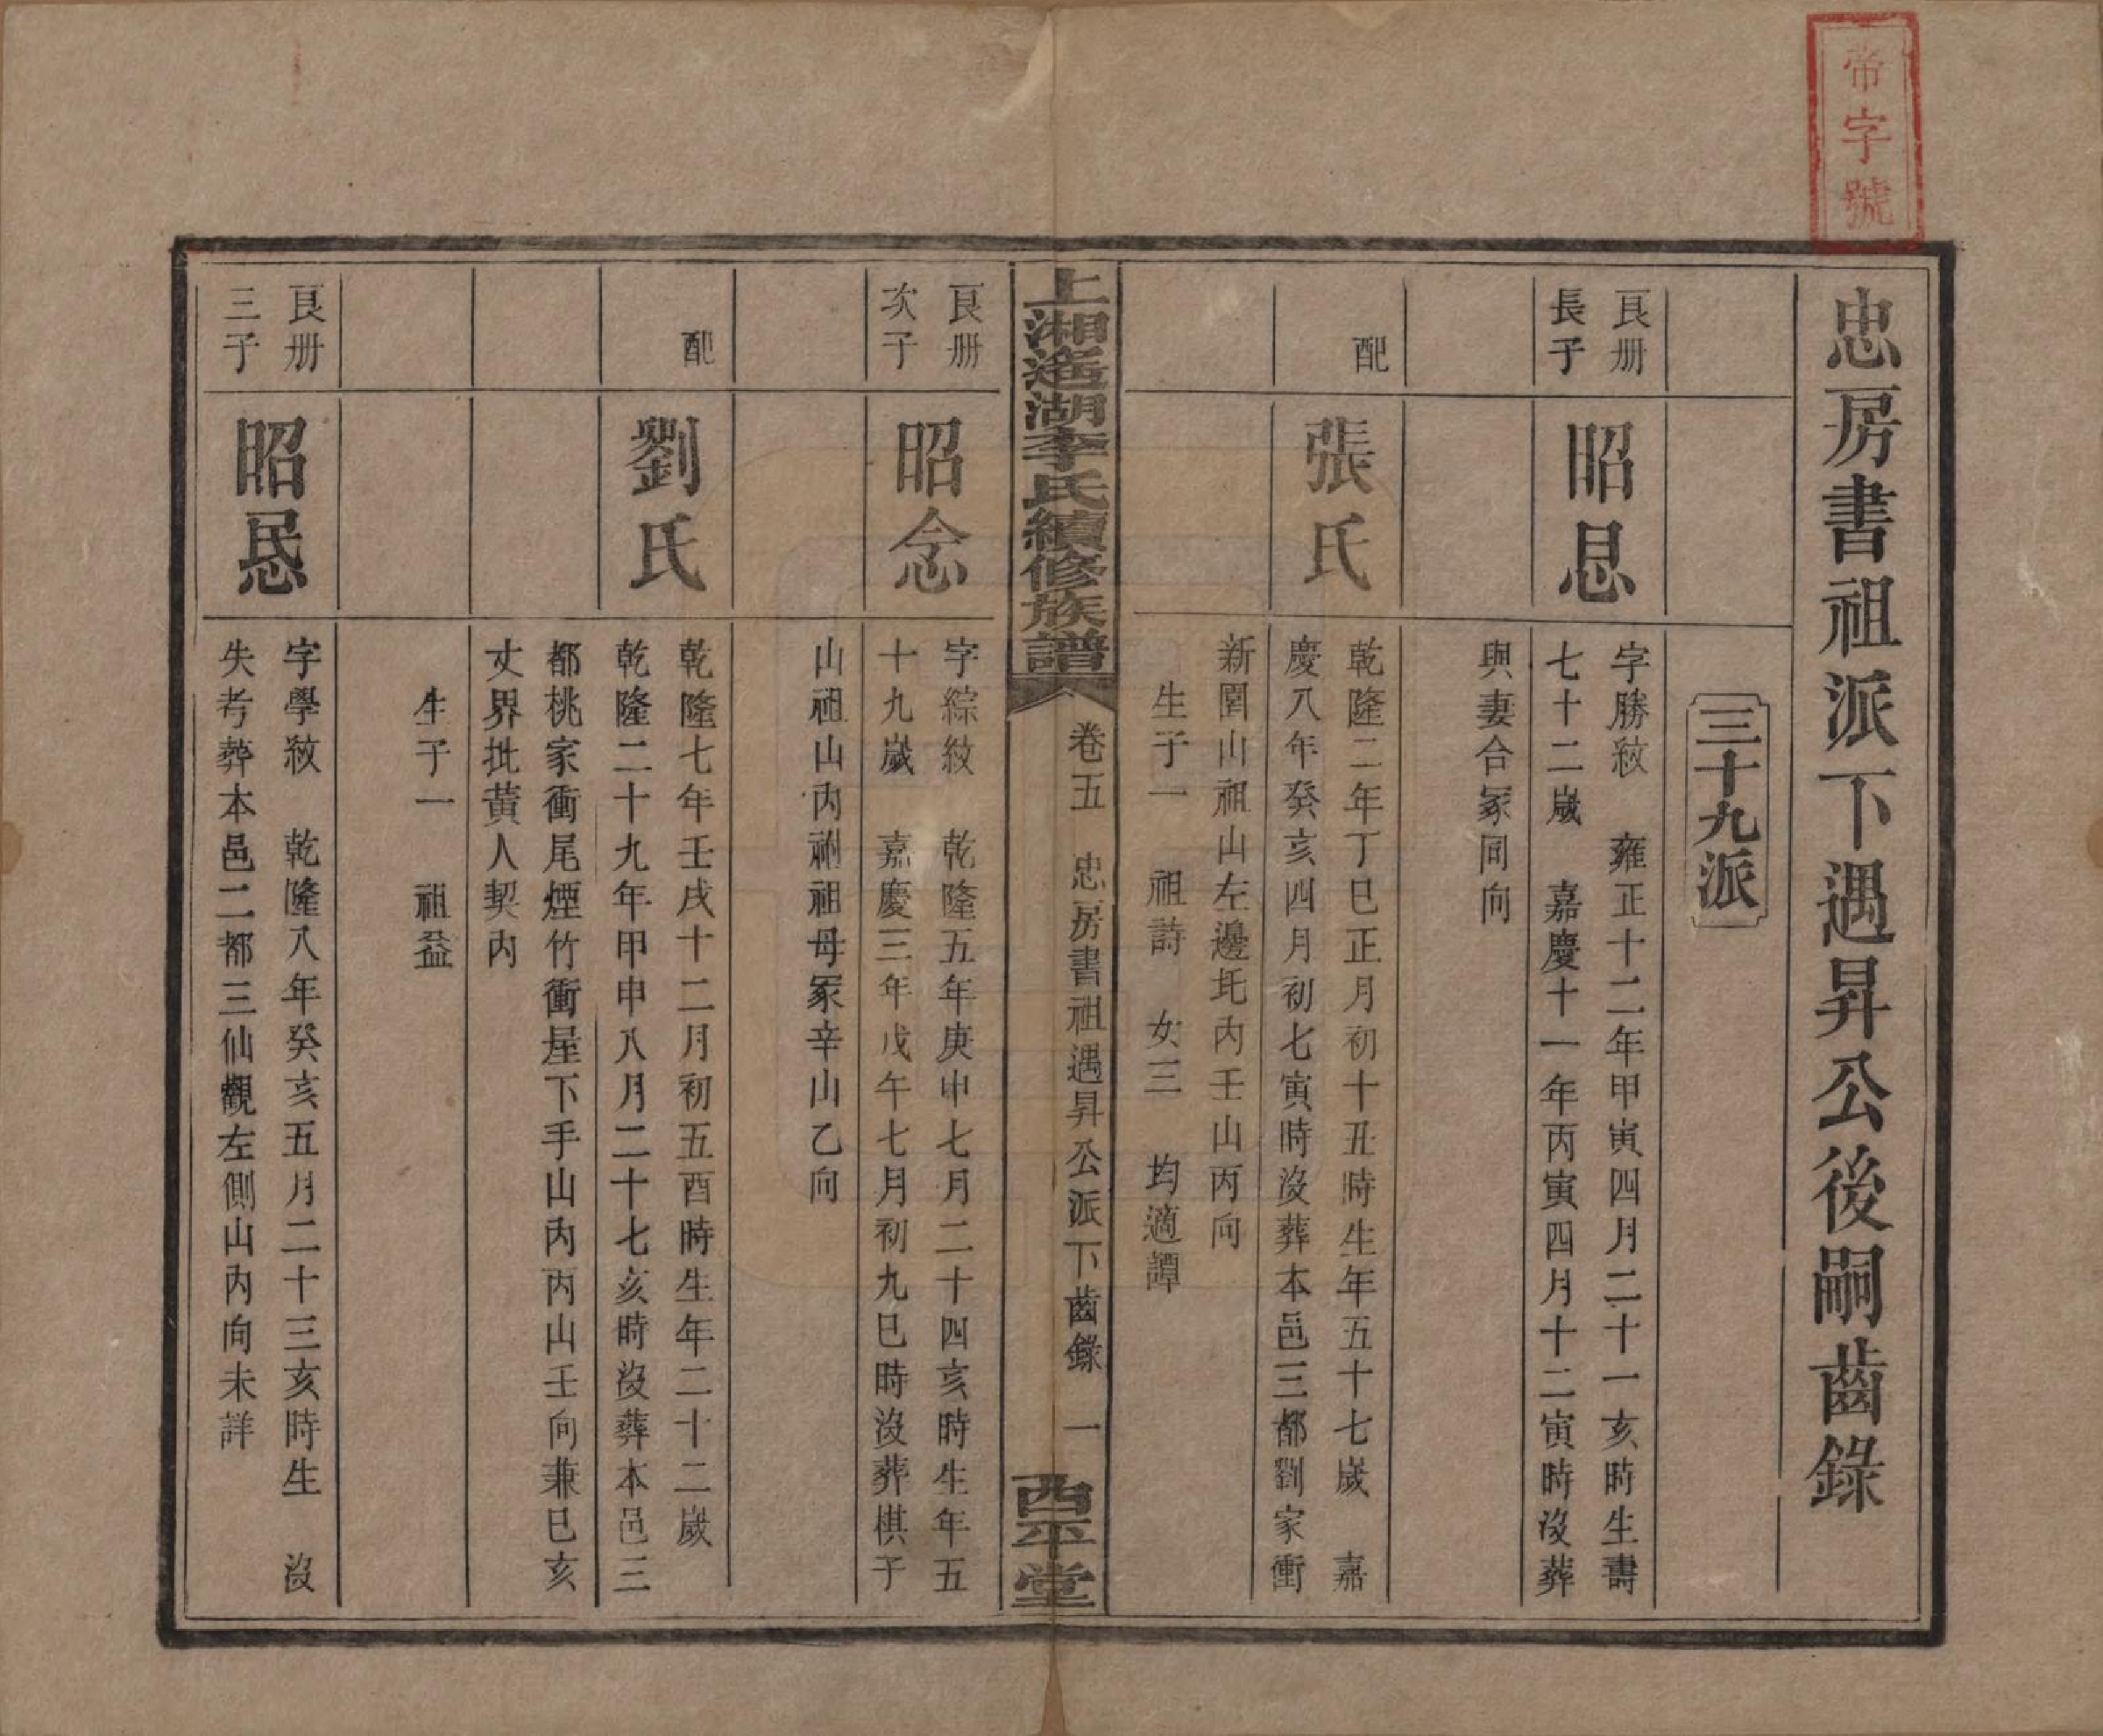 帝字號
忠房書祖派下遇昇公後嗣齒錄
三十九派
良册
長子
昭恳
字勝紋　雍正十二年甲寅四月二十一亥時生壽
七十二歲　嘉慶十一年丙寅四月十二寅時沒葬
與妻合冢同向
配
張氏
乾隆二年丁巳正月初十丑時生年五十七歲　嘉
慶八年癸亥四月初七寅時沒葬本邑三都劉家衝
新圍山祖山左邊圫內壬山丙向
生子一　祖詩　女三　均適譚
上湘遙湖李氏續修族譜
卷五　忠房書祖遇昇公派下齒錄　一
西平堂
良册
次子
昭念
字綜紋　乾隆五年庚申七月二十四亥時生年五
十九歲　嘉慶三年戊午七月初九巳時沒葬棋子
山祖山內祔祖母冢辛山乙向
配
劉氏
乾隆七年壬戌十二月初五酉時生年二十二歲
乾隆二十九年甲申八月二十七亥時沒葬本邑三
都桃家衝尾煙竹衝屋下手山內丙山壬向兼巳亥
丈界批黃人契內
生子一　祖益
良册
三子
昭恳
字學紋　乾隆八年癸亥五月二十三亥時生　沒
失考葬本邑二都三仙觀左側山內向未詳